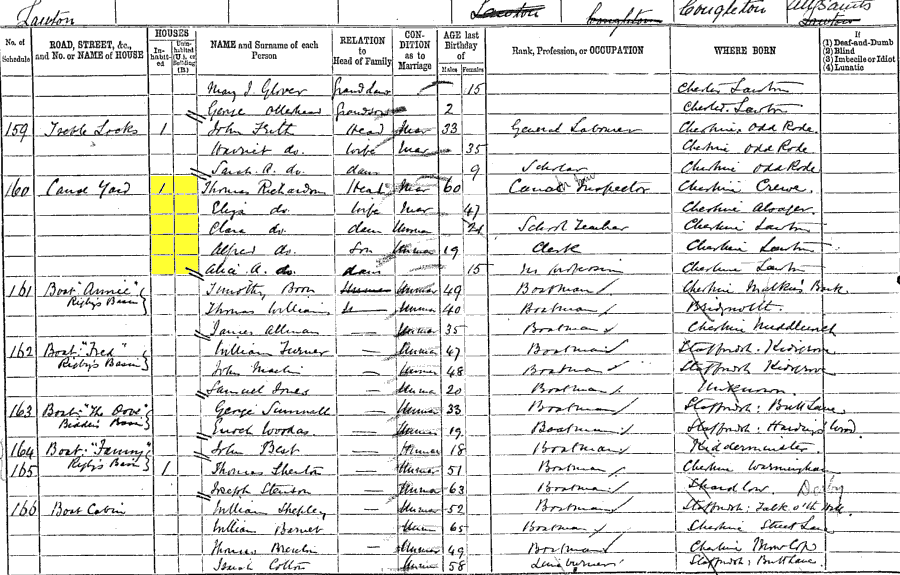 Lawton Lawton Congleton Congleton All Saints Lawton
No. of Schedule ROAD, STREET, &c., and No. or NAME of HOUSE HOUSES In-habit-ed Unin-habited (U.), or Building (B.) NAME and Surname of each Person RELATION to Head of Family CON-DITION as to Marriage AGE last Birthday of Males Females Rank, Profession, or OCCUPATION WHERE BORN If (1) Deaf-and-Dumb (2) Blind (3) Imbecile or Idiot (4) Lunatic
Mary J. Glover 15 Lawton
George Grandson 2 Lawton
159 Locks 1 John Head Mar 33 General Labourer Cheshire Odd Rode
Harriet do. Wife Mar 35 Cheshire Odd Rode
Sarah A. do. daur 9 Scholar Cheshire Odd Rode
160 Canal Yard 1 Thomas Richardson Head Mar 60 Canal Inspector Cheshire Crewe
Eliza do. Wife Mar 47 Cheshire Alsager
Clara do. daur Unmar School Teacher Cheshire Lawton
Alfred do. Son Unmar 19 Clerk Cheshire Lawton
Alice A. do. daur 15 Cheshire Lawton
161 Boat "Annie" Rigby's Basin Timothy Boon Unmar 49 Boatman Cheshire Malkins Bank
Thomas Williams Unmar 40 Boatman Bridgnorth
James Allman Unmar 35 Boatman Cheshire Middlewich
162 Boat: "Fred" Rigby's Basin William Turner — Unmar 47 Boatman Kidsgrove
John Martin — Unmar 48 Boatman Kidsgrove
Samuel Jones — Unmar 20 Boatman Unknown
163 Boat: "The Dove" Basin George — Unmar 33 Boatman Butt Lane
Enoch — Unmar 19 Boatman
164 Boat: "Fanny" Rigby's Basin John Best — Unmar 18 Boatman Kidderminster
165 1 Thomas Shenton — Unmar 51 Boatman Cheshire Warmingham
Joseph — Unmar 63 Boatman Shardlow Derby
166 Boat Cabin William — Unmar 52 Boatman Talk o' th' Hill
William Barnet — Unmar 65 Boatman Cheshire Street Lane
Thomas — Unmar 49 Boatman Cheshire Mow Cop
Isaiah Cotton — Unmar 58 Lime burner Butt Lane